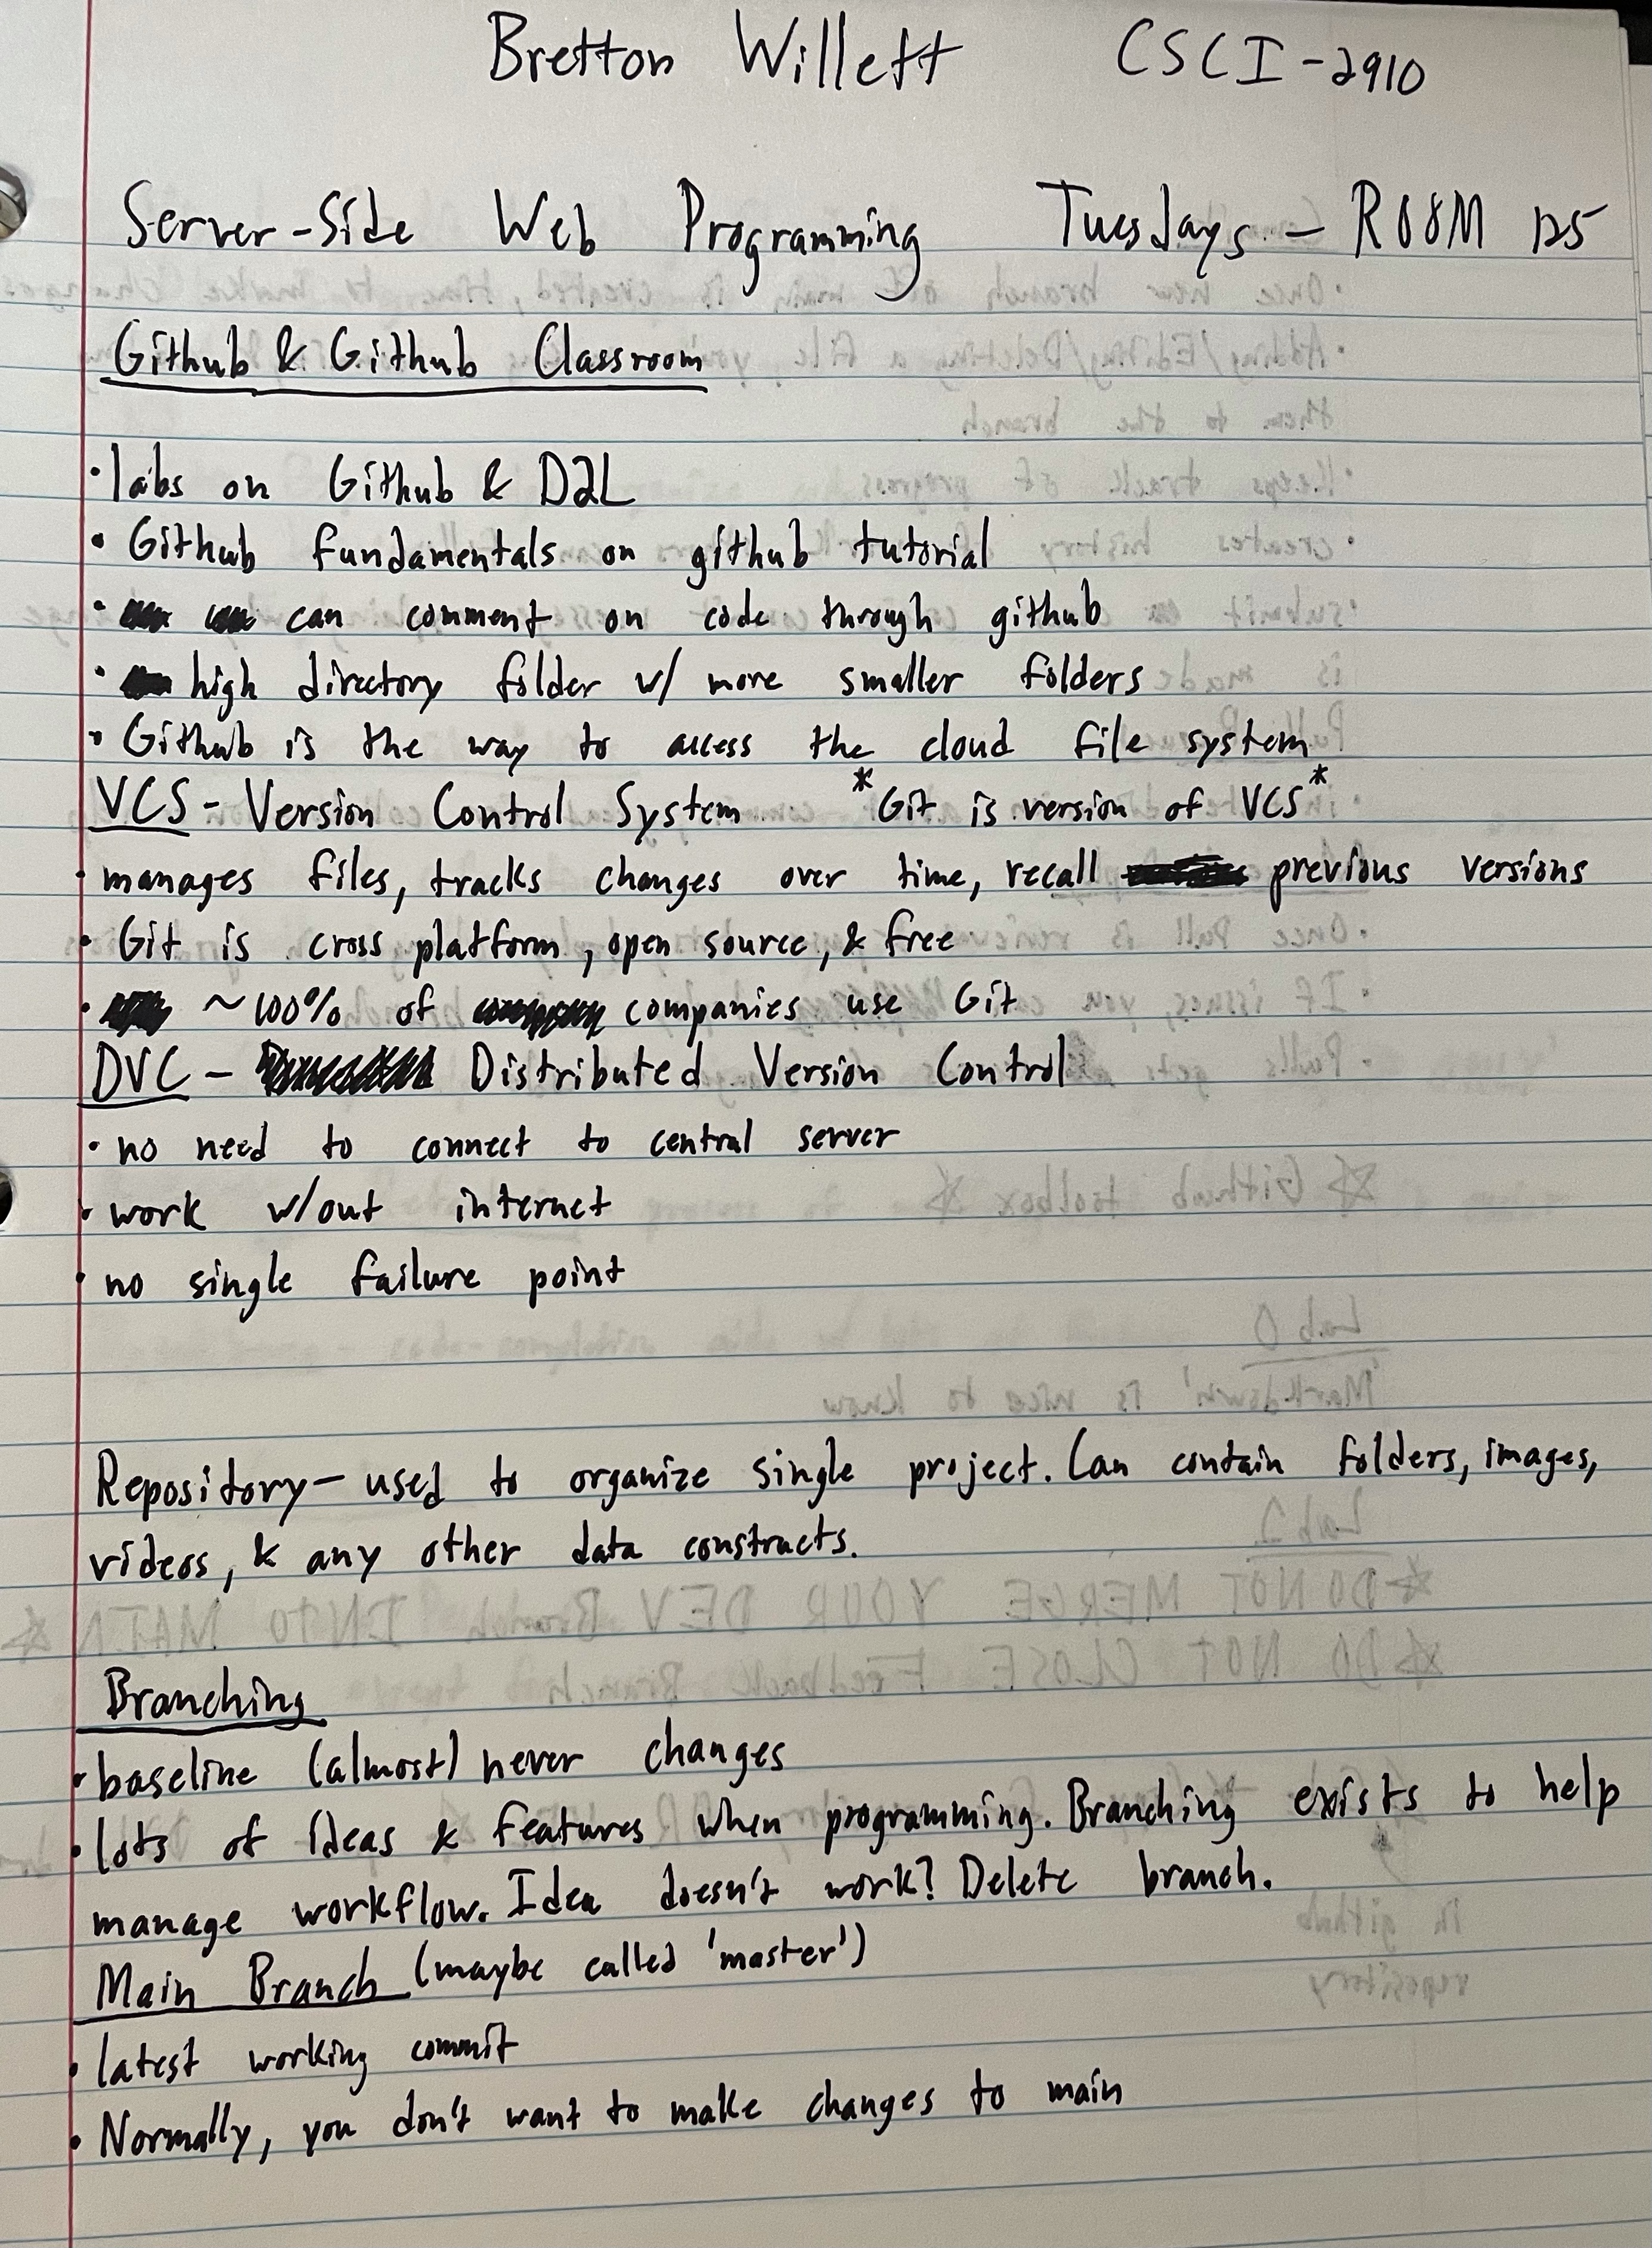 Bretton Willett CSCI-2910
Server-Side Web Programming Tuesdays - ROOM 125
Github & Github Classroom
• labs on Github & D2L
• Github fundamentals on github tutorial
• can comment on code through github
• high directory folder w/ more smaller folders
• Github is the way to access the cloud file system
VCS - Version Control System *Git is version of VCS*
• manages files, tracks changes over time, recall previous versions
• Git is cross platform, open source, & free
• ~100% of companies use Git
DVC - Distributed Version Control
• no need to connect to central server
• work w/out internet
• no single failure point
Repository - used to organize single project. Can contain folders, images,
videos, & any other data constructs.
Branching
• baseline (almost) never changes
• lots of ideas & features when programming. Branching exists to help
manage workflow. Idea doesn't work? Delete branch.
Main Branch (maybe called 'master')
• latest working commit
• Normally, you don't want to make changes to main